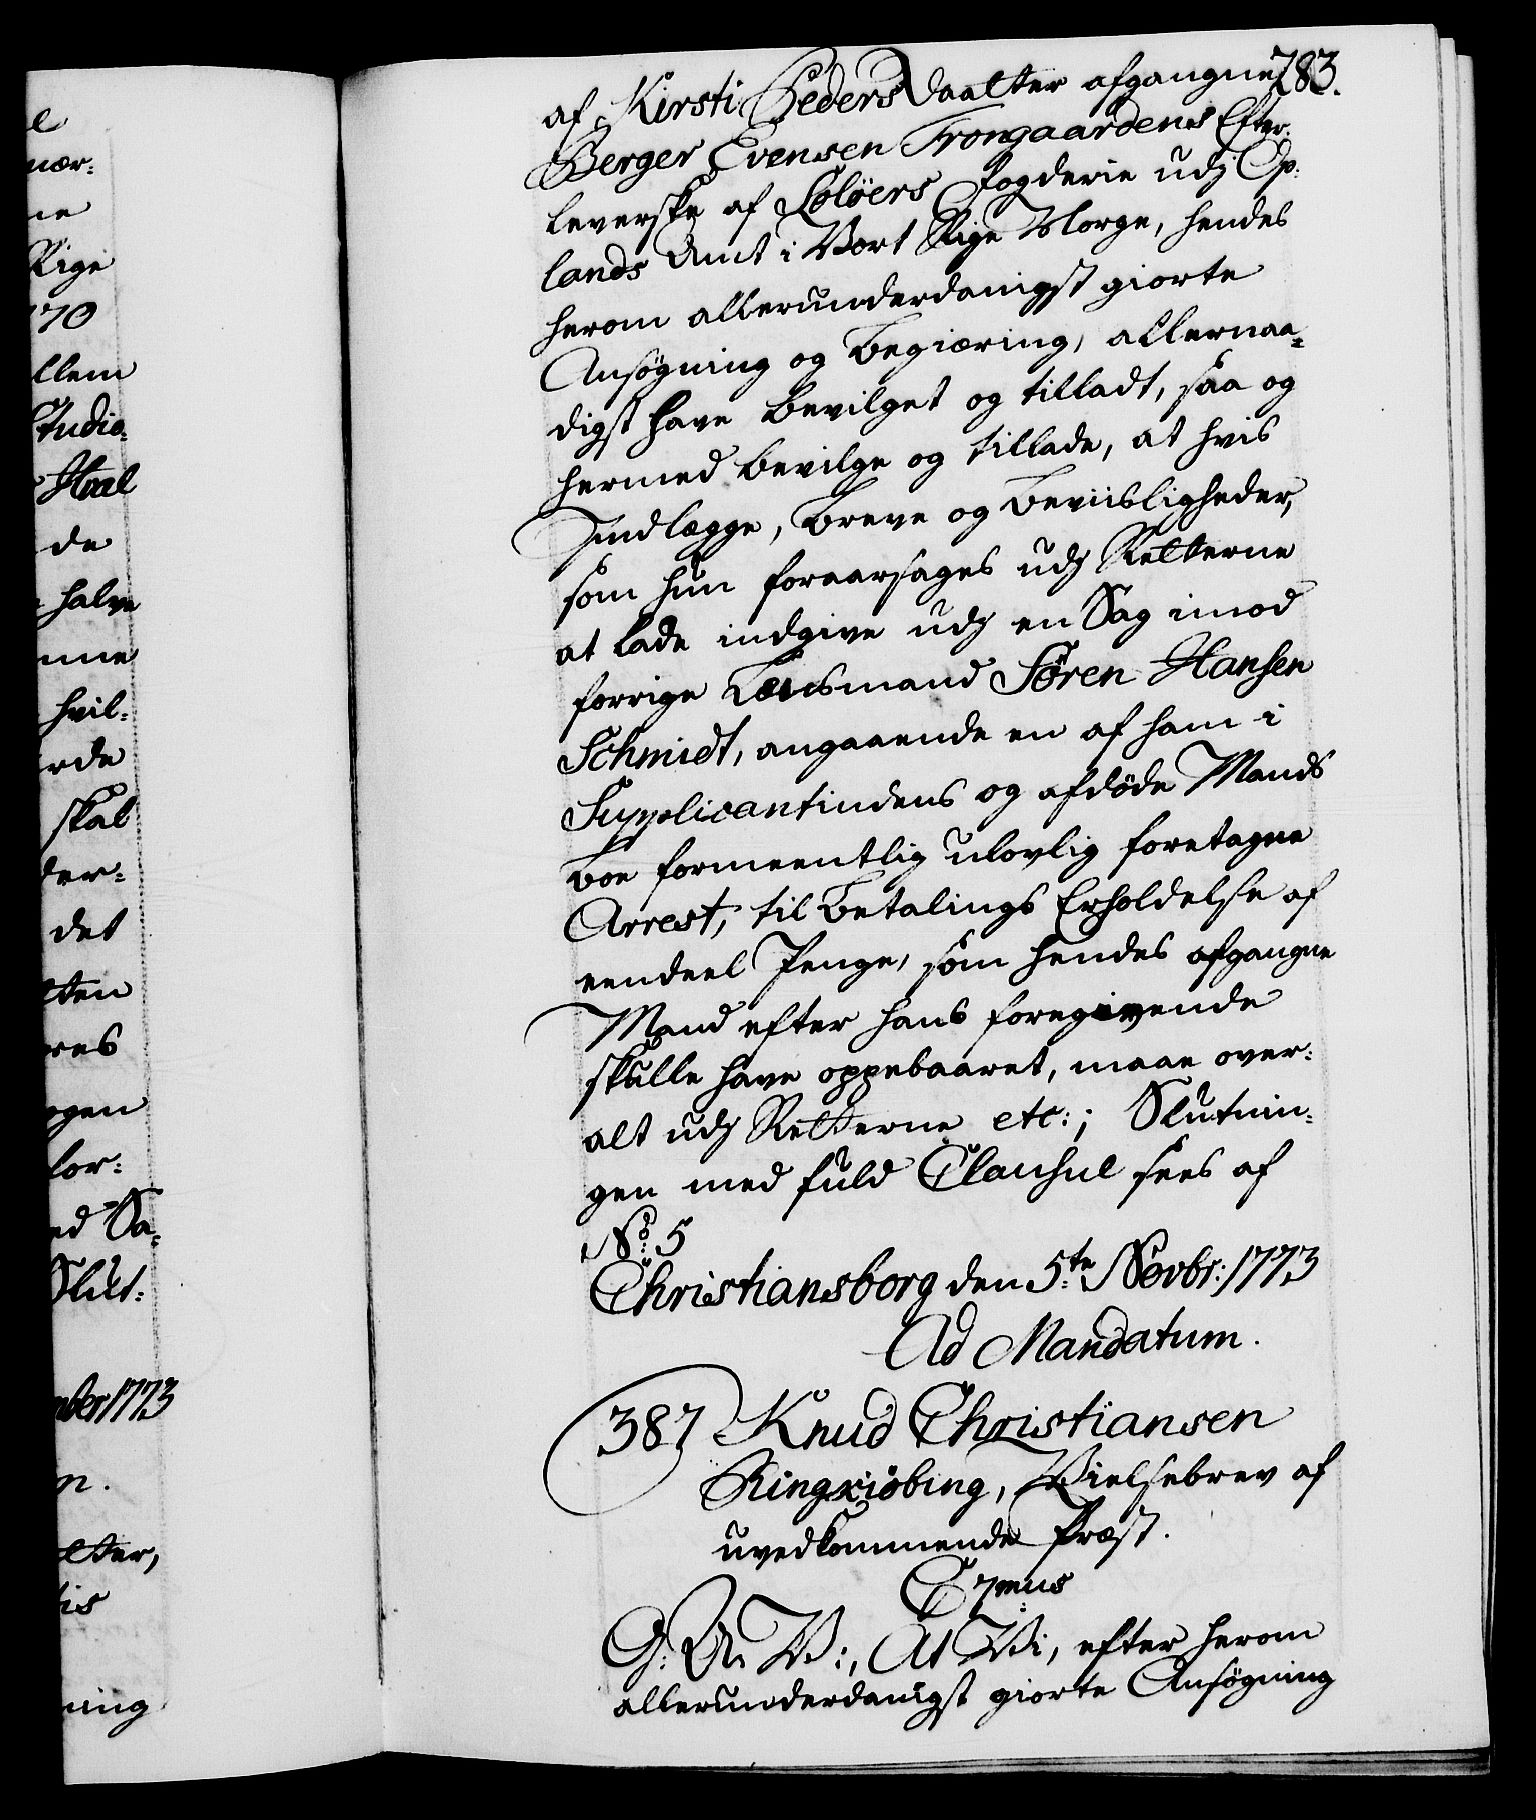 783.
af Kirsti Peders Daatter afgangne
Berger Evensen Frongaardens Efter-
leverske af Soløers Fogderie udj Op-
lands Amt i Vort Rige Norge, hendes
herom allerunderdanigst giorte
Ansøgning og Begiæring, allernaa-
digst have bevilget og tilladt, saa og
hermed bevilge og tillade, at hvis
Indlægge, Breve og Beviisligheder,
som hun foraarsages udj Retterne
at lade indgive udj en Sag imod
forrige Lænsmand Søren Hansen
Schmidt, angaaende en af ham i
Supplicantindens og afdøde Mands
Boe formeentlig ulovlig foretagne
Arrest, til Betalings Erholdelse af
eendeel Penge, som hendes afgangne
Mand efter hans foregivende
skulle have oppebaaret, maae over-
alt udj Retterne etc:; Slutnin-
gen med fuld Clausul sees af
No: 5
Christiansborg den 5.te Novbr: 1773
Ad Mandatum.
387 Knud Christiansen
Ringkiøbing, Vielsebrev af
uvedkommende Præst.
C 7mus
G: A: V:, At Vi, efter herom
allerunderdanigst giorte Ansøgning
e
nær:
ne
Rige
770
llem
Studio:
Hval
de
halve
nne
hvil:
rde
skal
der:
det
tten
res
ogen
for:
ed Sa:
Slut:
mber 1773
n.
tter,
tis
ning